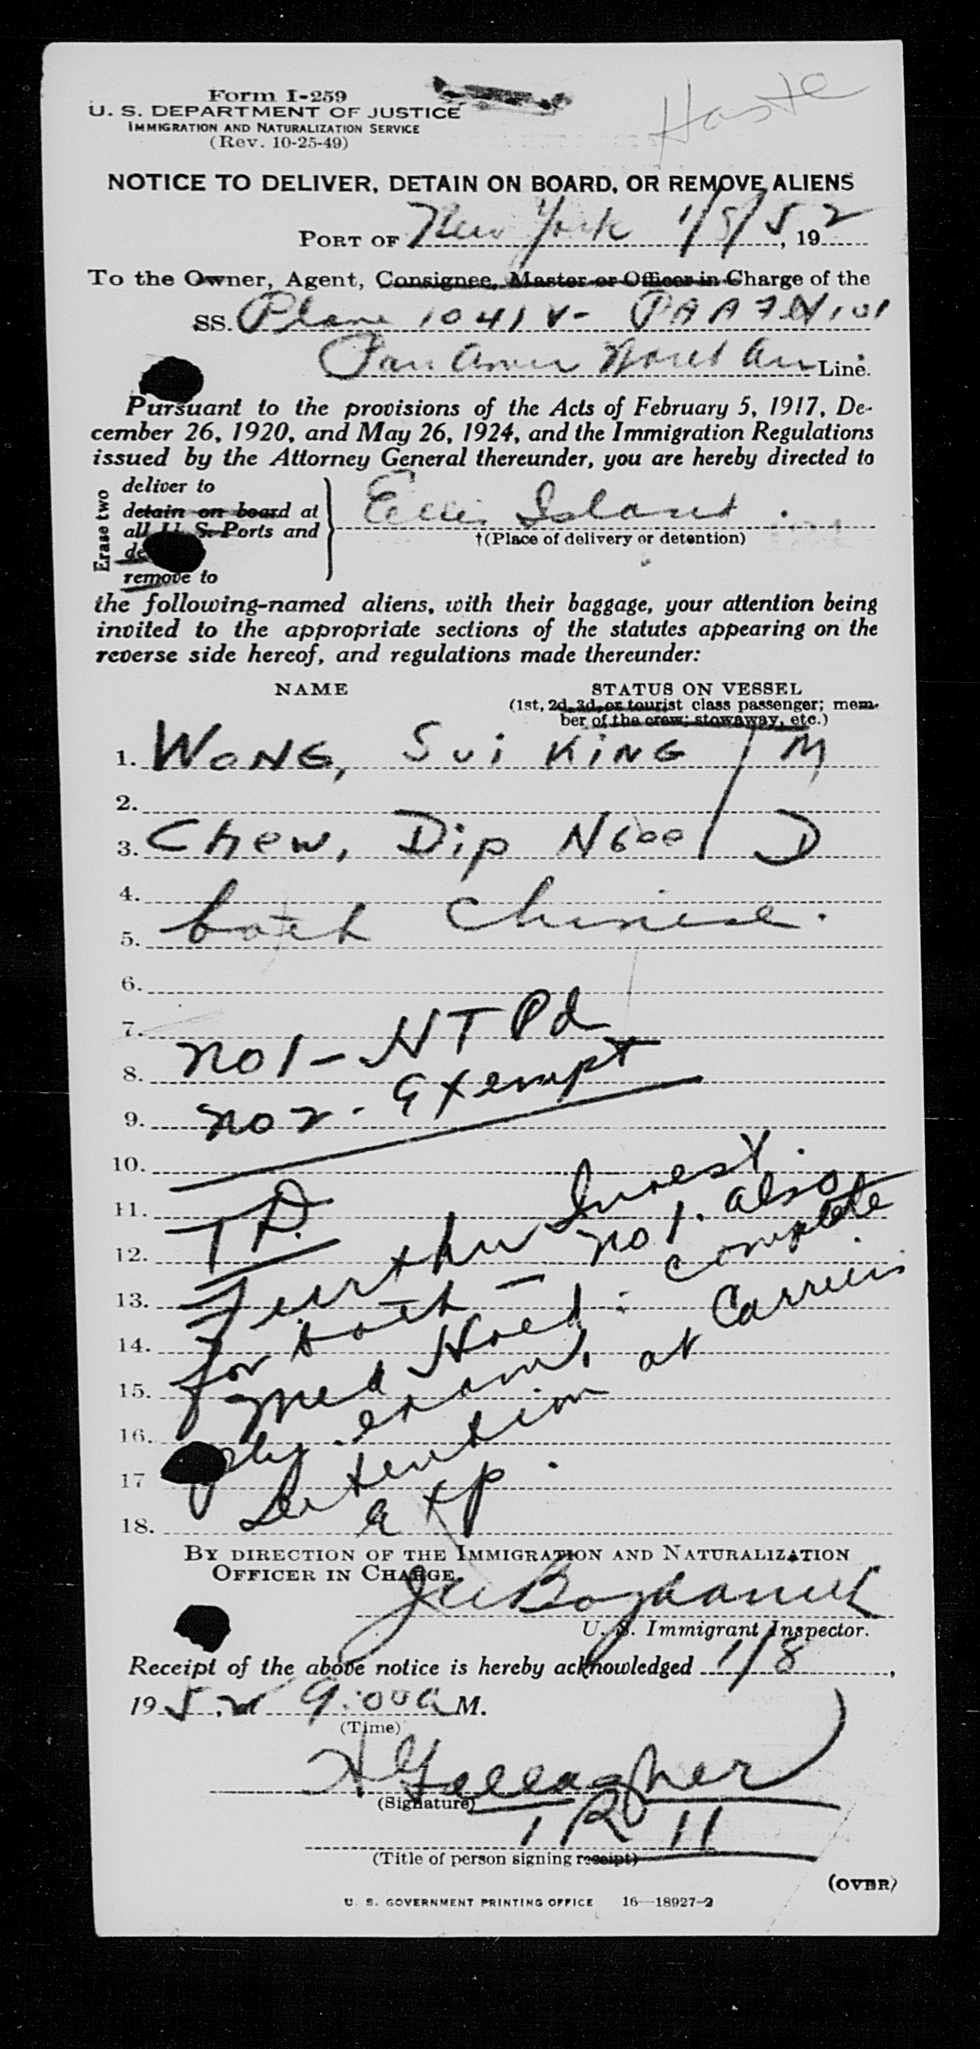 Form I-259
U. S. DEPARTMENT OF JUSTICE
IMMIGRATION AND NATURALIZATION SERVICE
(Rev. 10-25-49)
Haste
NOTICE TO DELIVER, DETAIN ON BOARD, OR REMOVE ALIENS
PORT OF New York 1/8/52, 1952
To the Owner, Agent, Consignee, Master or Officer in Charge of the
SS. Plane 1041 V- PAA 7
Pan Amer World Air Line.
Pursuant to the provisions of the Acts of February 5, 1917, De-
cember 26, 1920, and May 26, 1924, and the Immigration Regulations
issued by the Attorney General thereunder, you are hereby directed to
Erase two
deliver to
detain on board at
all U. S. Ports and
remove to
Ellis Island
†(Place of delivery or detention)
the following-named aliens, with their baggage, your attention being
invited to the appropriate sections of the statutes appearing on the
reverse side hereof, and regulations made thereunder:
NAME STATUS ON VESSEL
(1st, 2d, 3d, or tourist class passenger; mem-
ber of the crew; stowaway, etc.)
1. WONG, SUI KING / M
2.
3. Chew, Dip / D
4.
5. both Chinese.
6.
7. no 1 - HT Pd
8. no 2 - Exempt
9.
10.
11. T D.
12. Further Invest.
13. for both - no 1. also
14. Med Hold : complete
15. phy. exam.
16. Detention at Carriers
17 exp.
18.
BY DIRECTION OF THE IMMIGRATION AND NATURALIZATION
OFFICER IN CHARGE.
U. S. Immigrant Inspector.
Receipt of the above notice is hereby acknowledged 1/8,
1952 9:00 a M.
(Time)
H Gallagher
(Signature)
(Title of person signing receipt)
(OVER)
U. S. GOVERNMENT PRINTING OFFICE 16—18927-2